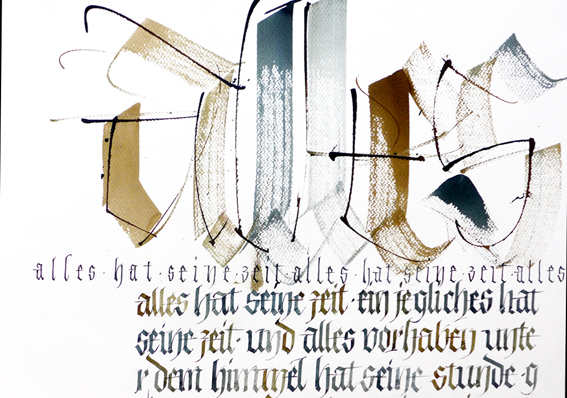 alles
alles · hat · seine · zeit · alles · hat · seine · zeit · alles
alles hat seine zeit · ein jegliches hat
seine zeit · und alles vorhaben unte
r dem himmel hat seine stunde · g